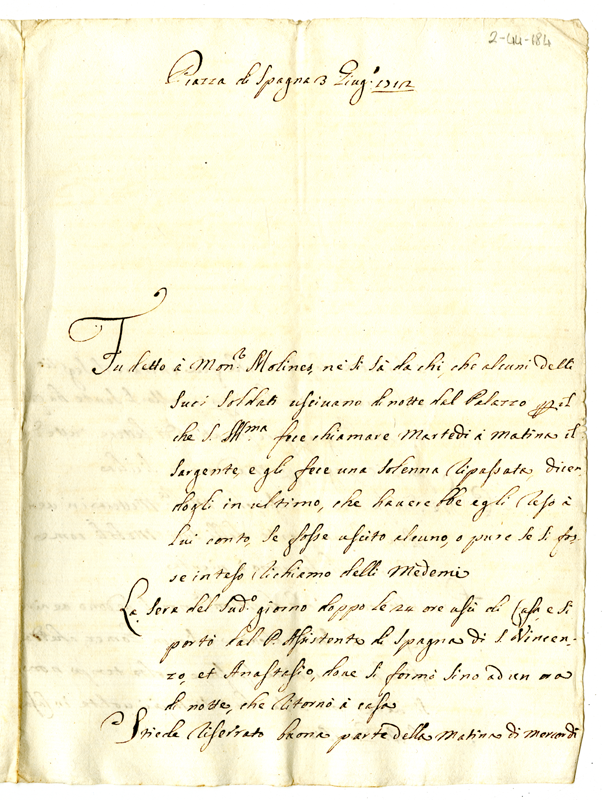 2-44-184
Piazza di Spagna 3 Giug.o 1712
Fu detto à Mon.r Molines, nè si sà da chi, che alcuni delli
suoi soldati uscivano di notte dal Palazzo per il
che S. Ill.ma fece chiamare Martedi à matina il
sargente, e gli fece una solenna ripassata, dicen-
dogli in ultimo, che haverebbe egli reso à
lui conto, se fosse uscito alcuno, o pure se si fos-
se inteso richiamo delli Medemi
La sera del sud.o giorno doppo le 24 ore uscì di Casa, e si
portò dal P. Assistente di Spagna di S. Vincen-
zo, et Anastasio, dove si formò sino ad un ora
di notte, che ritornò à casa
Stiede riserrato buona parte della Matina di Mercordi